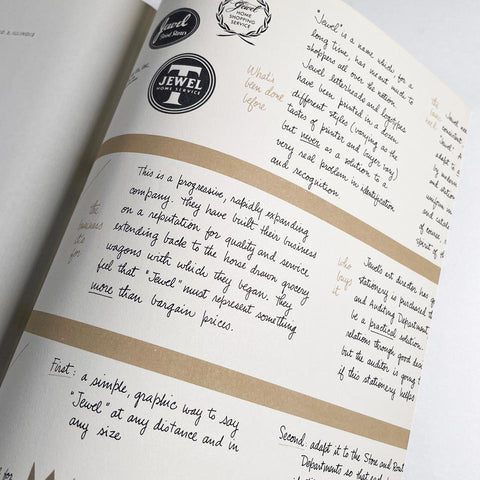 Jewel
Food Stores
Jewel
HOME
SHOPPING
SERVICE
JEWEL
T
HOME SERVICE
What's
been done
before
"Jewel" is a name which, for a
long time, has meant much to
shoppers all over the nation.
Jewel letterheads and logotypes
have been printed in a dozen
different styles (varying as the
tastes of printer and buyer vary)
but never as a solution to a
very real problem in identification
and recognition.
the
business
it's
for
This is a progressive, rapidly expanding
company. They have built their business
on a reputation for quality and service
extending back to the horse drawn grocery
wagons with which they began. They
feel that "Jewel" must represent something
more than bargain prices.
who
buys
it
Jewel's art director has go
stationery is purchased th
and Auditing Department
be a practical solution
relations through good desi
but the auditor is going t
if this stationery helps
First: a simple, graphic way to say
"Jewel" at any distance and in
any size
Second: adapt it to the Store and Rout
Departments so that each